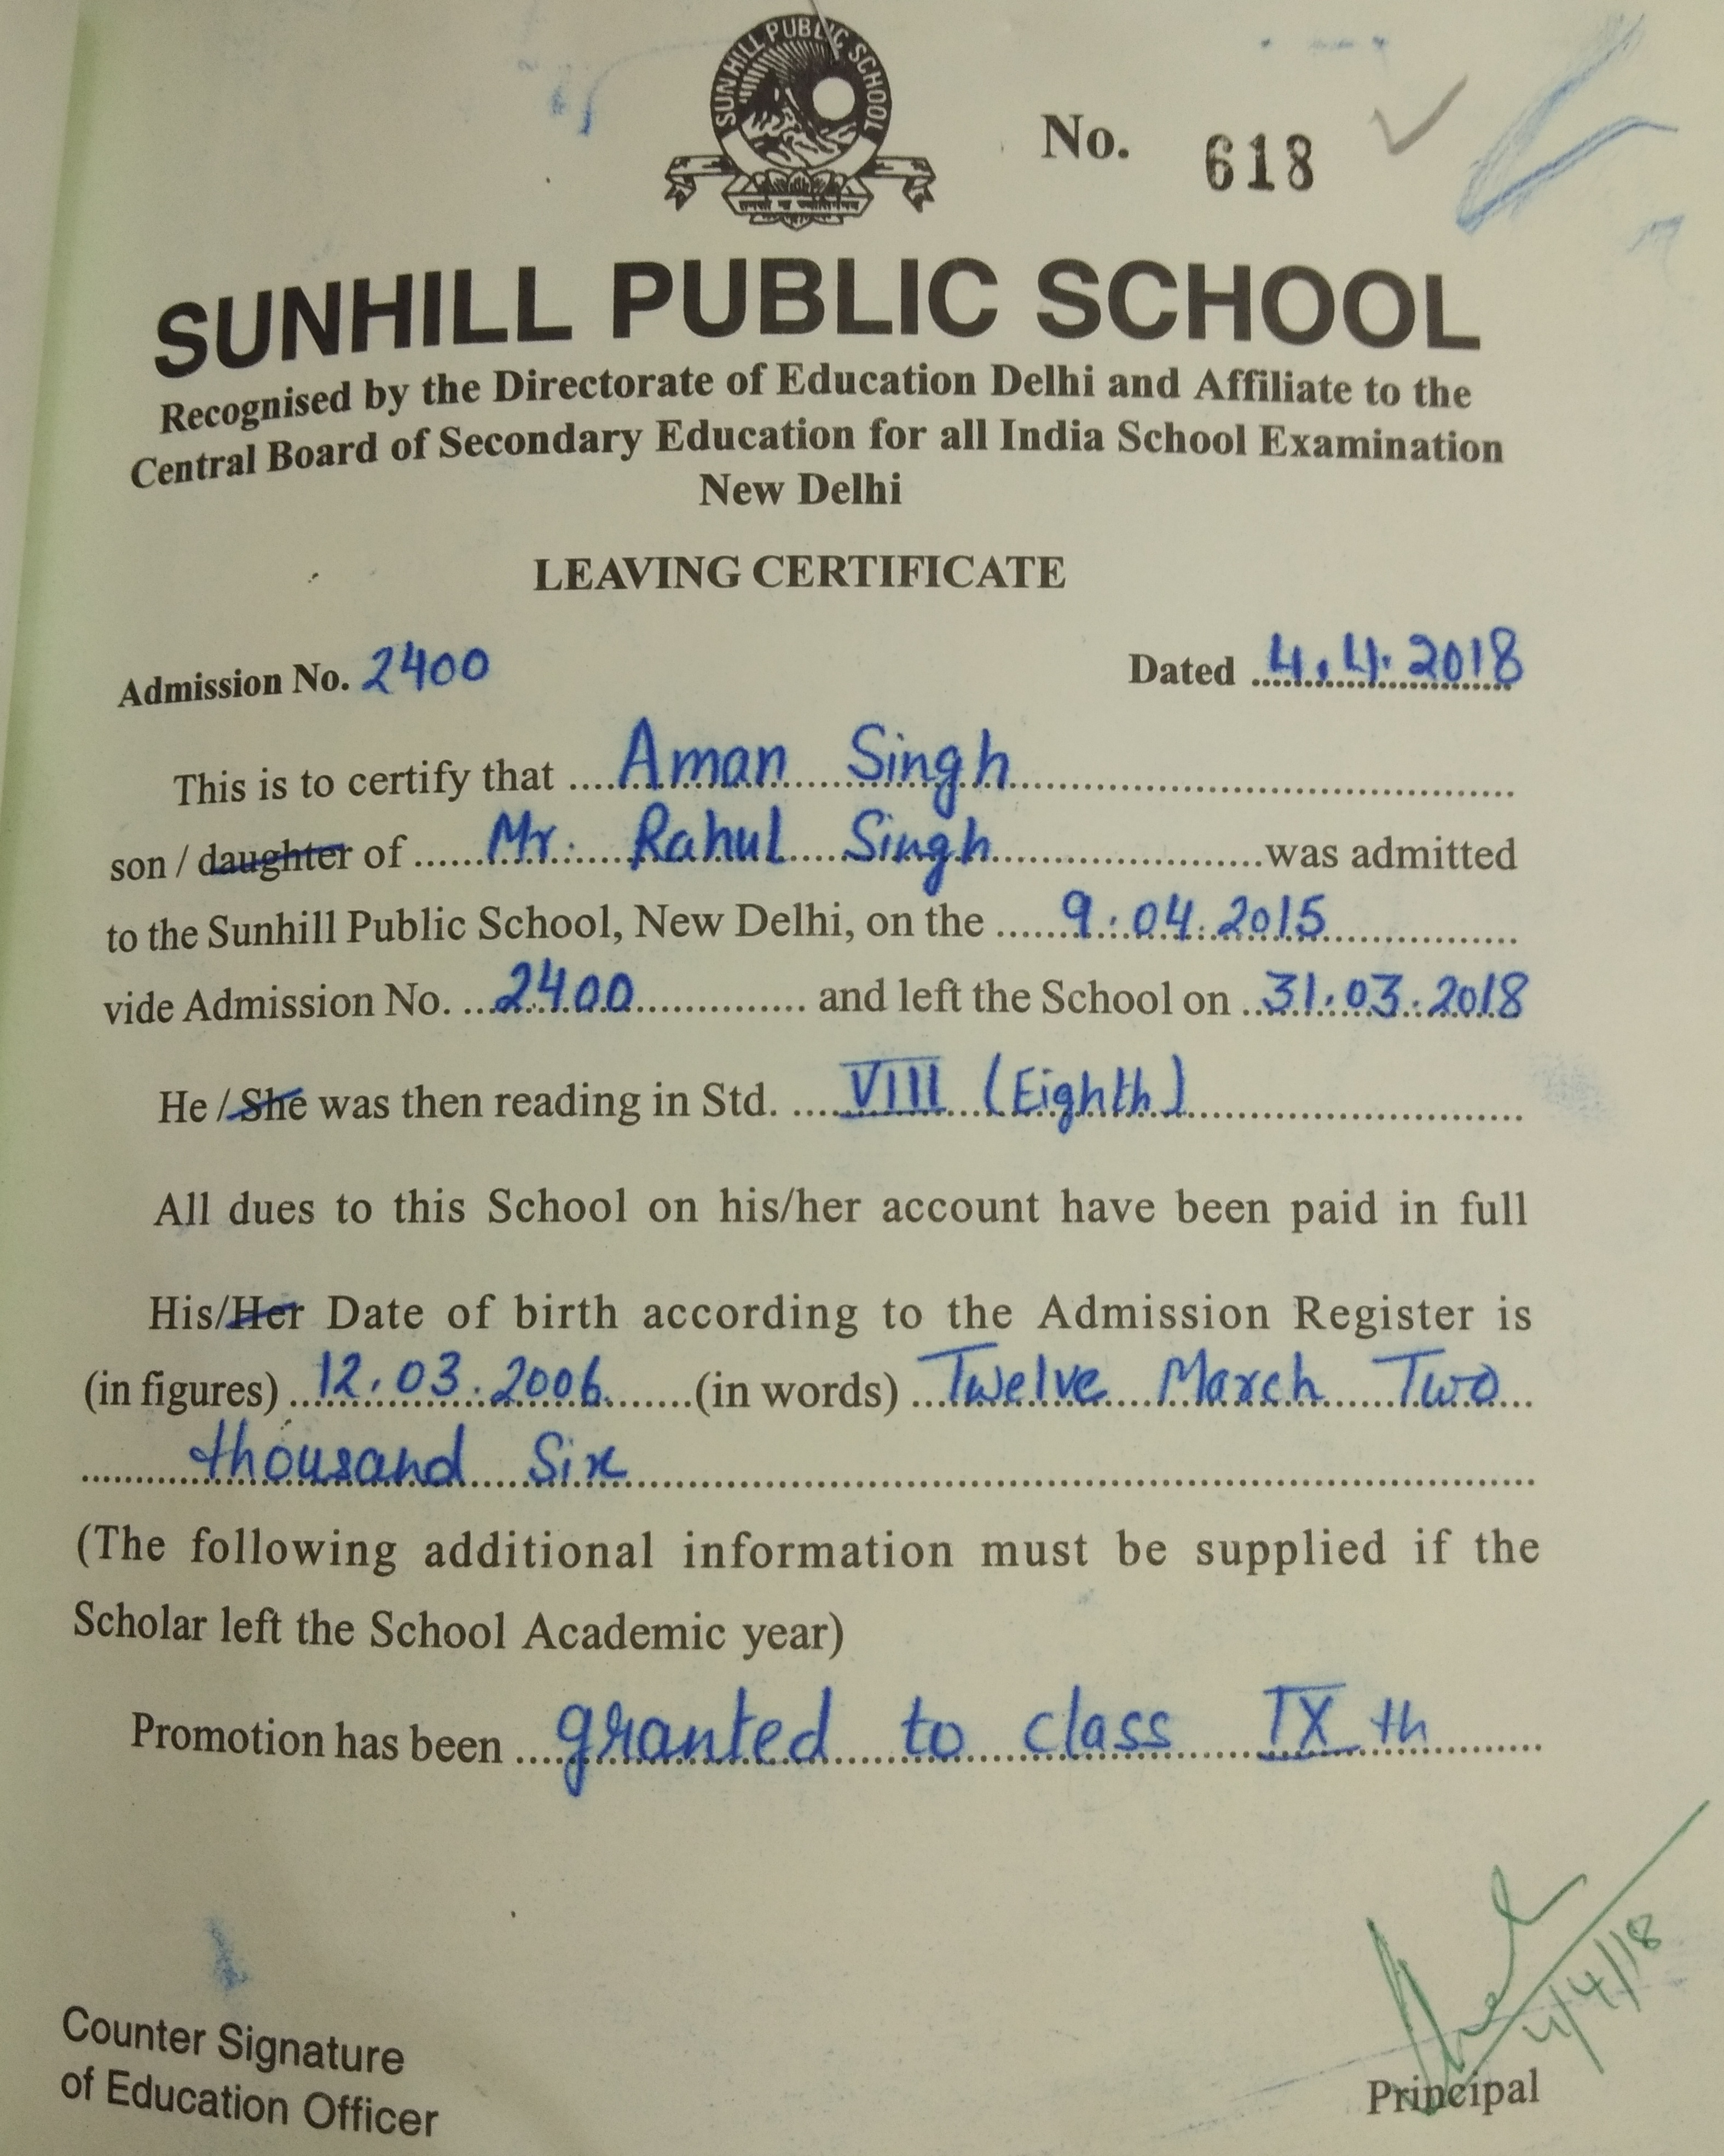 SUNHILL PUBLIC SCHOOL
No. 618
SUNHILL PUBLIC SCHOOL
Recognised by the Directorate of Education Delhi and Affiliate to the
Central Board of Secondary Education for all India School Examination
New Delhi
LEAVING CERTIFICATE
Admission No. 2400 Dated 4.4.2018
This is to certify that Aman Singh
son / daughter of Mr. Rahul Singh was admitted
to the Sunhill Public School, New Delhi, on the 9.04.2015
vide Admission No. 2400 and left the School on 31.03.2018
He / She was then reading in Std. VIII (Eighth)
All dues to this School on his/her account have been paid in full
His/Her Date of birth according to the Admission Register is
(in figures) 12.03.2006. (in words) Twelve March Two
thousand Six
(The following additional information must be supplied if the
Scholar left the School Academic year)
Promotion has been granted to class IX th
4/4/18
Counter Signature
of Education Officer
Principal